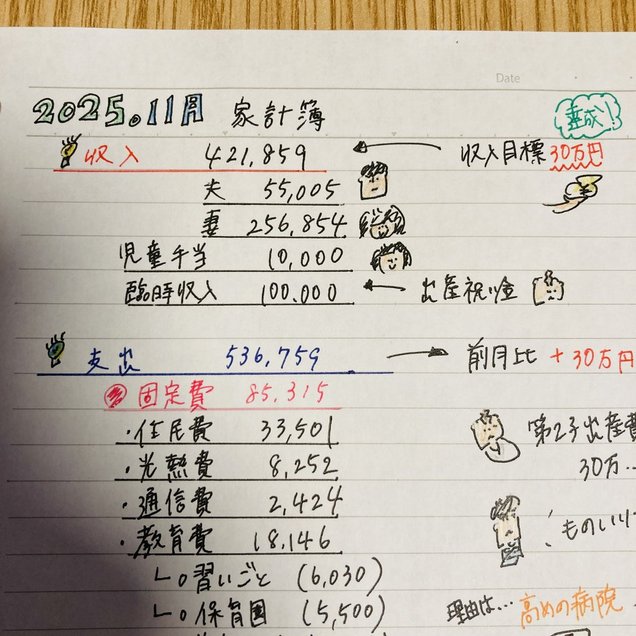 Date
2025.11月 家計簿
達成!
収入 421,859 収入目標30万円
夫 55,005
妻 256,854
児童手当 10,000
臨時収入 100,000 出産祝い金
支出 536,759 前月比 +30万円
固定費 85,315
・住民費 33,501
第2子出産費
・光熱費 8,252
30万…
・通信費 2,424
・教育費 18,146
└○習いごと (6,030)
└○保育園 (5,500)
理由は…高めの病院